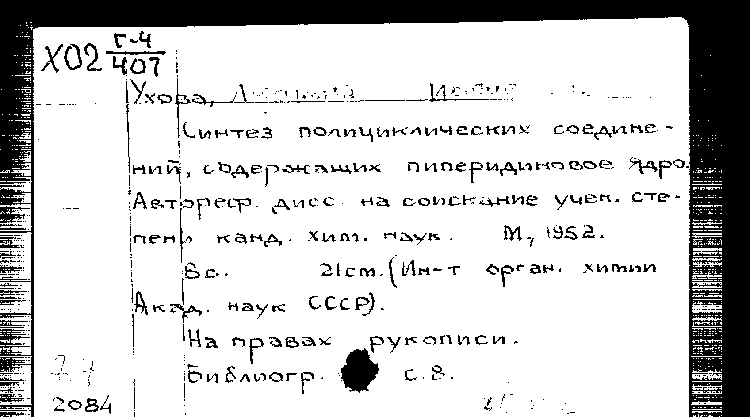 Х02 Г-4
407
Ухова,
Синтез полициклических соедине-
ний, содержащих пиперидиновое ядро.
Автореф. дисс. на соискание учен. сте-
пени канд. хим. наук. М, 1952.
8с. 21см. (Ин-т орган. химии
Акад. наук СССР).
На правах рукописи.
Библиогр. с. 8.
2084